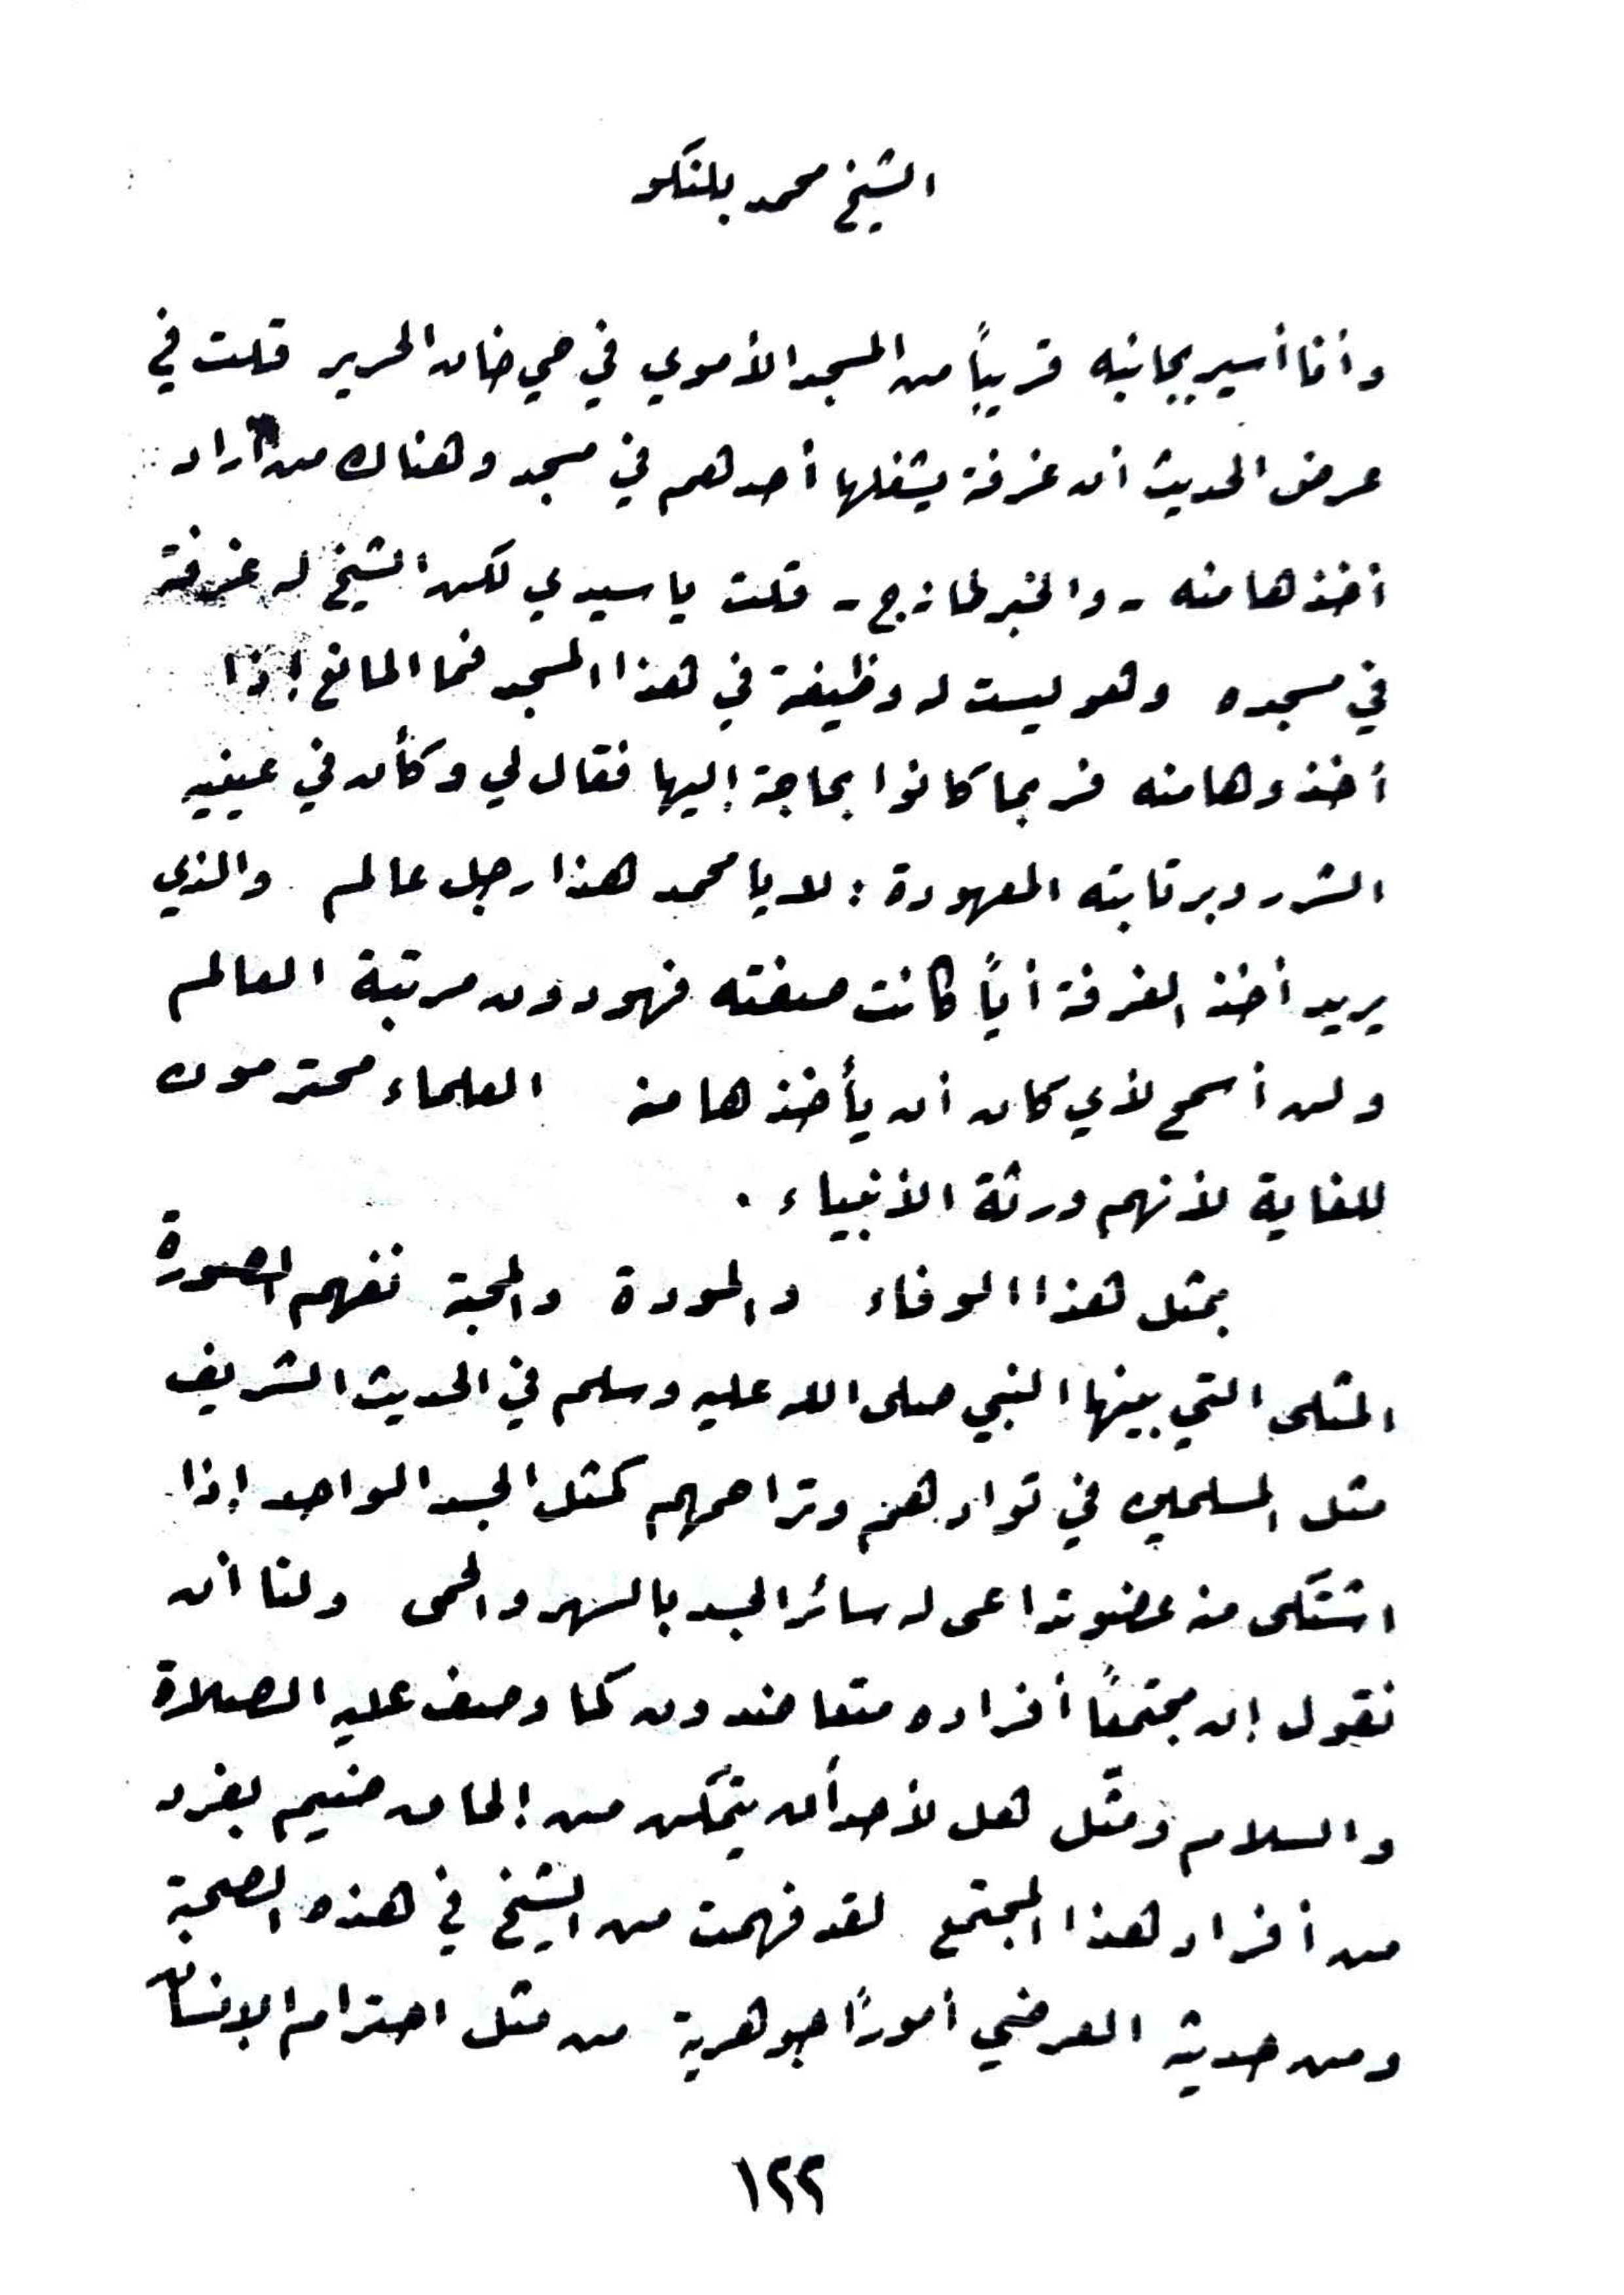 الشيخ محمد بلنكو
وأنا أسير بجانبه قريباً من المسجد الأموي في حي خان الحرير قلت في
عرض الحديث أن غرفة يشغلها أحدهم في مسجد وهناك من أراد
أخذها منه - والخبر طازج - قلت يا سيدي لكن الشيخ له غرفة
في مسجده وهو ليست له وظيفة في هذا المسجد فما المانع إذا
أخذوها منه فربما كانوا بحاجة إليها فقال لي وكأن في عينيه
الشرر وبرتابته المعهودة : لا يا محمد هذا رجل عالم والذي
يريد أخذ الغرفة أياً كانت صفته فهو دون مرتبة العالم
ولن أسمح لأي كان أن يأخذها منه العلماء محترمون
للغاية لأنهم ورثة الأنبياء .
بمثل هذا الوفاء والمودة والمحبة نفهم الصورة
المثلى التي بينها النبي صلى الله عليه وسلم في الحديث الشريف
مثل المسلمين في توادهم وتراحمهم كمثل الجسد الواحد إذا
اشتكى منه عضو تداعى له سائر الجسد بالسهر والحمى ولنا أن
نقول إن مجتمعاً أفراده متعاضدون كما وصف عليه الصلاة
والسلام ومثّل هل لأحد أن يتمكن من إلحاق ضيم بفرد
من أفراد هذا المجتمع لقد فهمت من الشيخ في هذه الصحبة
ومن حديثه العرضي أموراً جوهرية من مثل احترام الإنسان
١٢٢